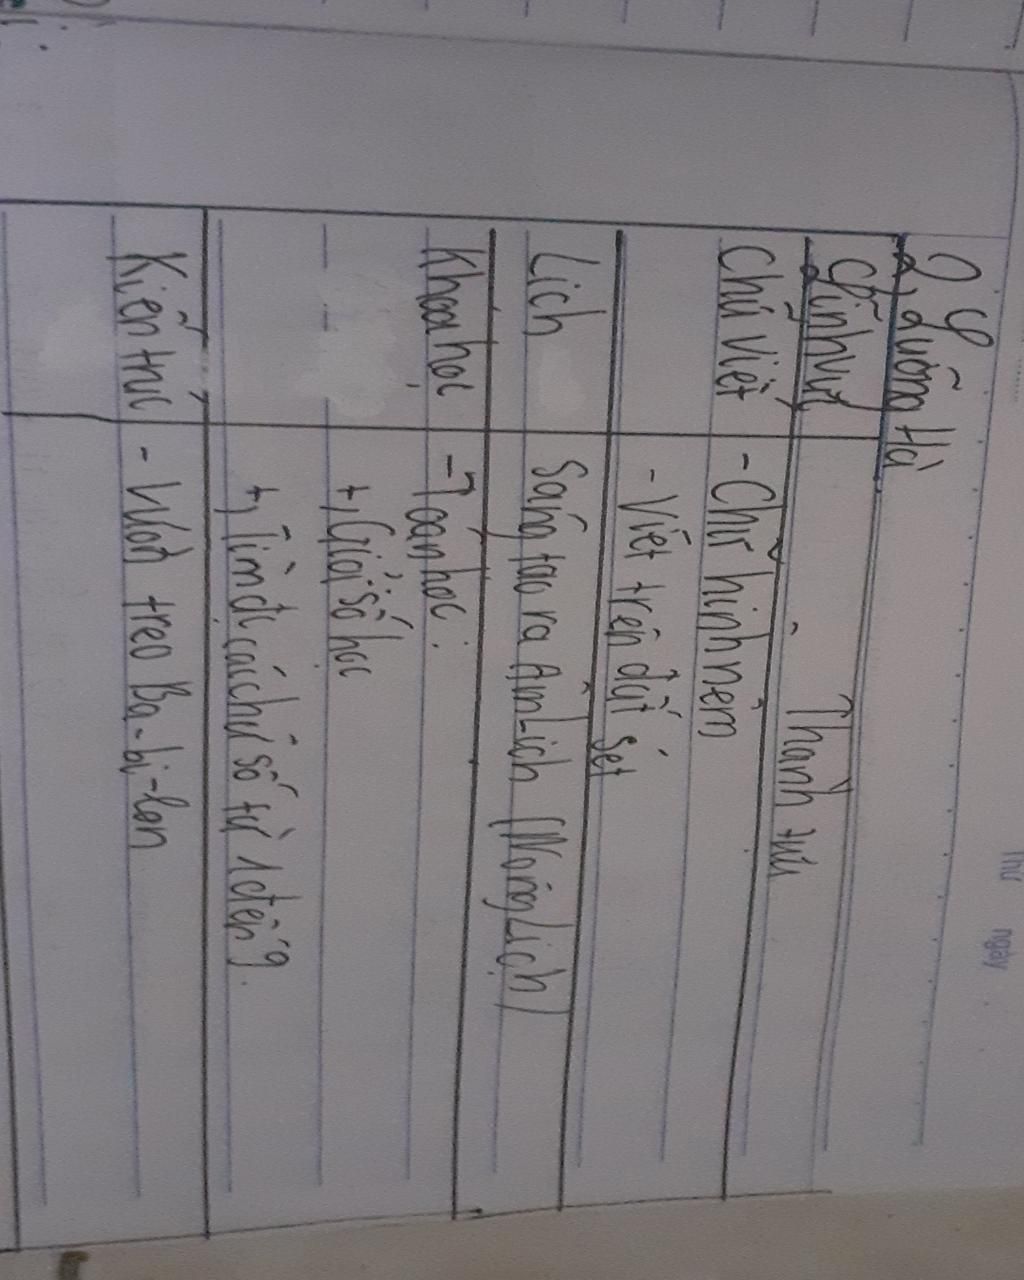 Thứ ngày
2, Lưỡng Hà
Lĩnh vực
Thành tựu
Chữ viết
- Chữ hình nêm
- Viết trên đất sét
Lịch
Sáng tạo ra Âm Lịch (Nông Lịch)
Khoa học
- Toán học:
+, Giỏi số học
+, Tìm đc các chữ số từ 1 đến 9.
Kiến trúc
- Vườn treo Ba-bi-lon